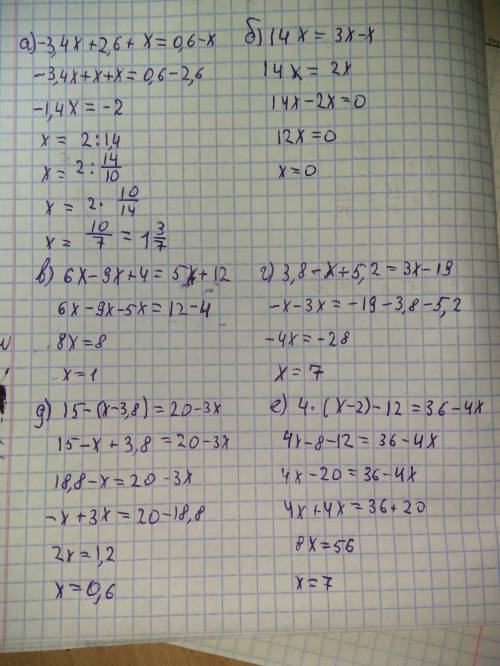 а) -3,4x+2,6+x=0,6-x
-3,4x+x+x=0,6-2,6
-1,4x=-2
x= 2:1,4
x= 2: 14/10
x= 2· 10/14
x= 10/7 = 1 3/7
б) 14x=3x-x
14x=2x
14x-2x=0
12x=0
x=0
в) 6x-9x+4=5x+12
6x-9x-5x=12-4
8x=8
x=1
г) 3,8-x+5,2=3x-19
-x-3x=-19-3,8-5,2
-4x=-28
x=7
д) 15-(x-3,8)=20-3x
15-x+3,8=20-3x
18,8-x=20-3x
-x+3x=20-18,8
2x=1,2
x=0,6
е) 4·(x-2)-12=36-4x
4x-8-12=36-4x
4x-20=36-4x
4x+4x=36+20
8x=56
x=7